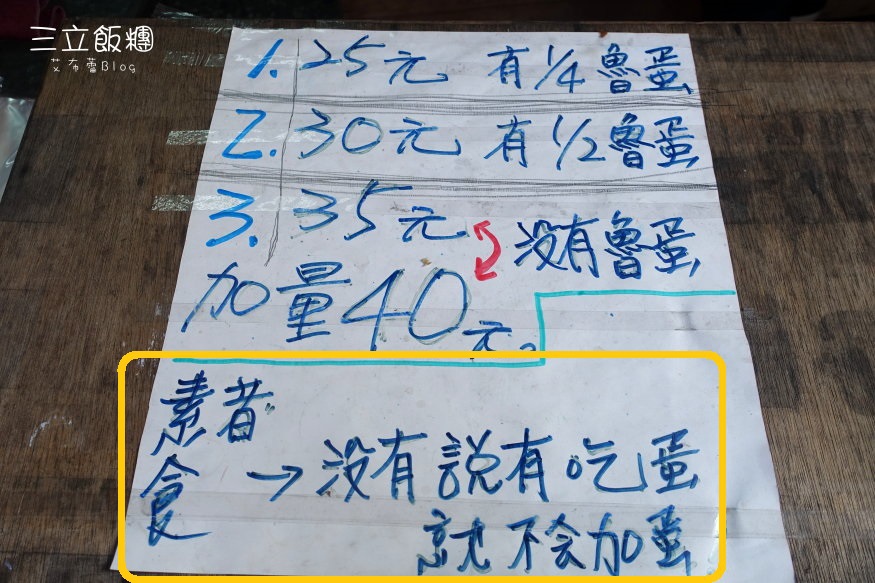 三立飯糰
艾布蕾Blog
1. 25元 有1/4魯蛋
2. 30元 有1/2魯蛋
3. 35元 没有魯蛋
加量40元。
素食者→没有說有吃蛋
就不会加蛋